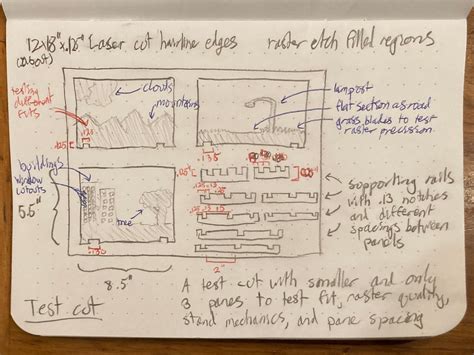 12x18"x.125" Laser cut hairline edges raster etch filled regions
(about)
testing
different
fits
clouds
mountains
lampost
flat section as road
grass blades to test
raster precision
.125
.125
.135
buildings
window
cutouts
tree
5.5"
.130
8.5"
2"
supporting rails
with .13 notches
and different
spacings between
panels
Test cut
A test cut with smaller and only
3 panes to test fit, raster quality,
stand mechanics, and pane spacing